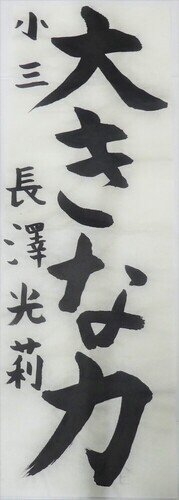 大きな力
小三 長澤光莉